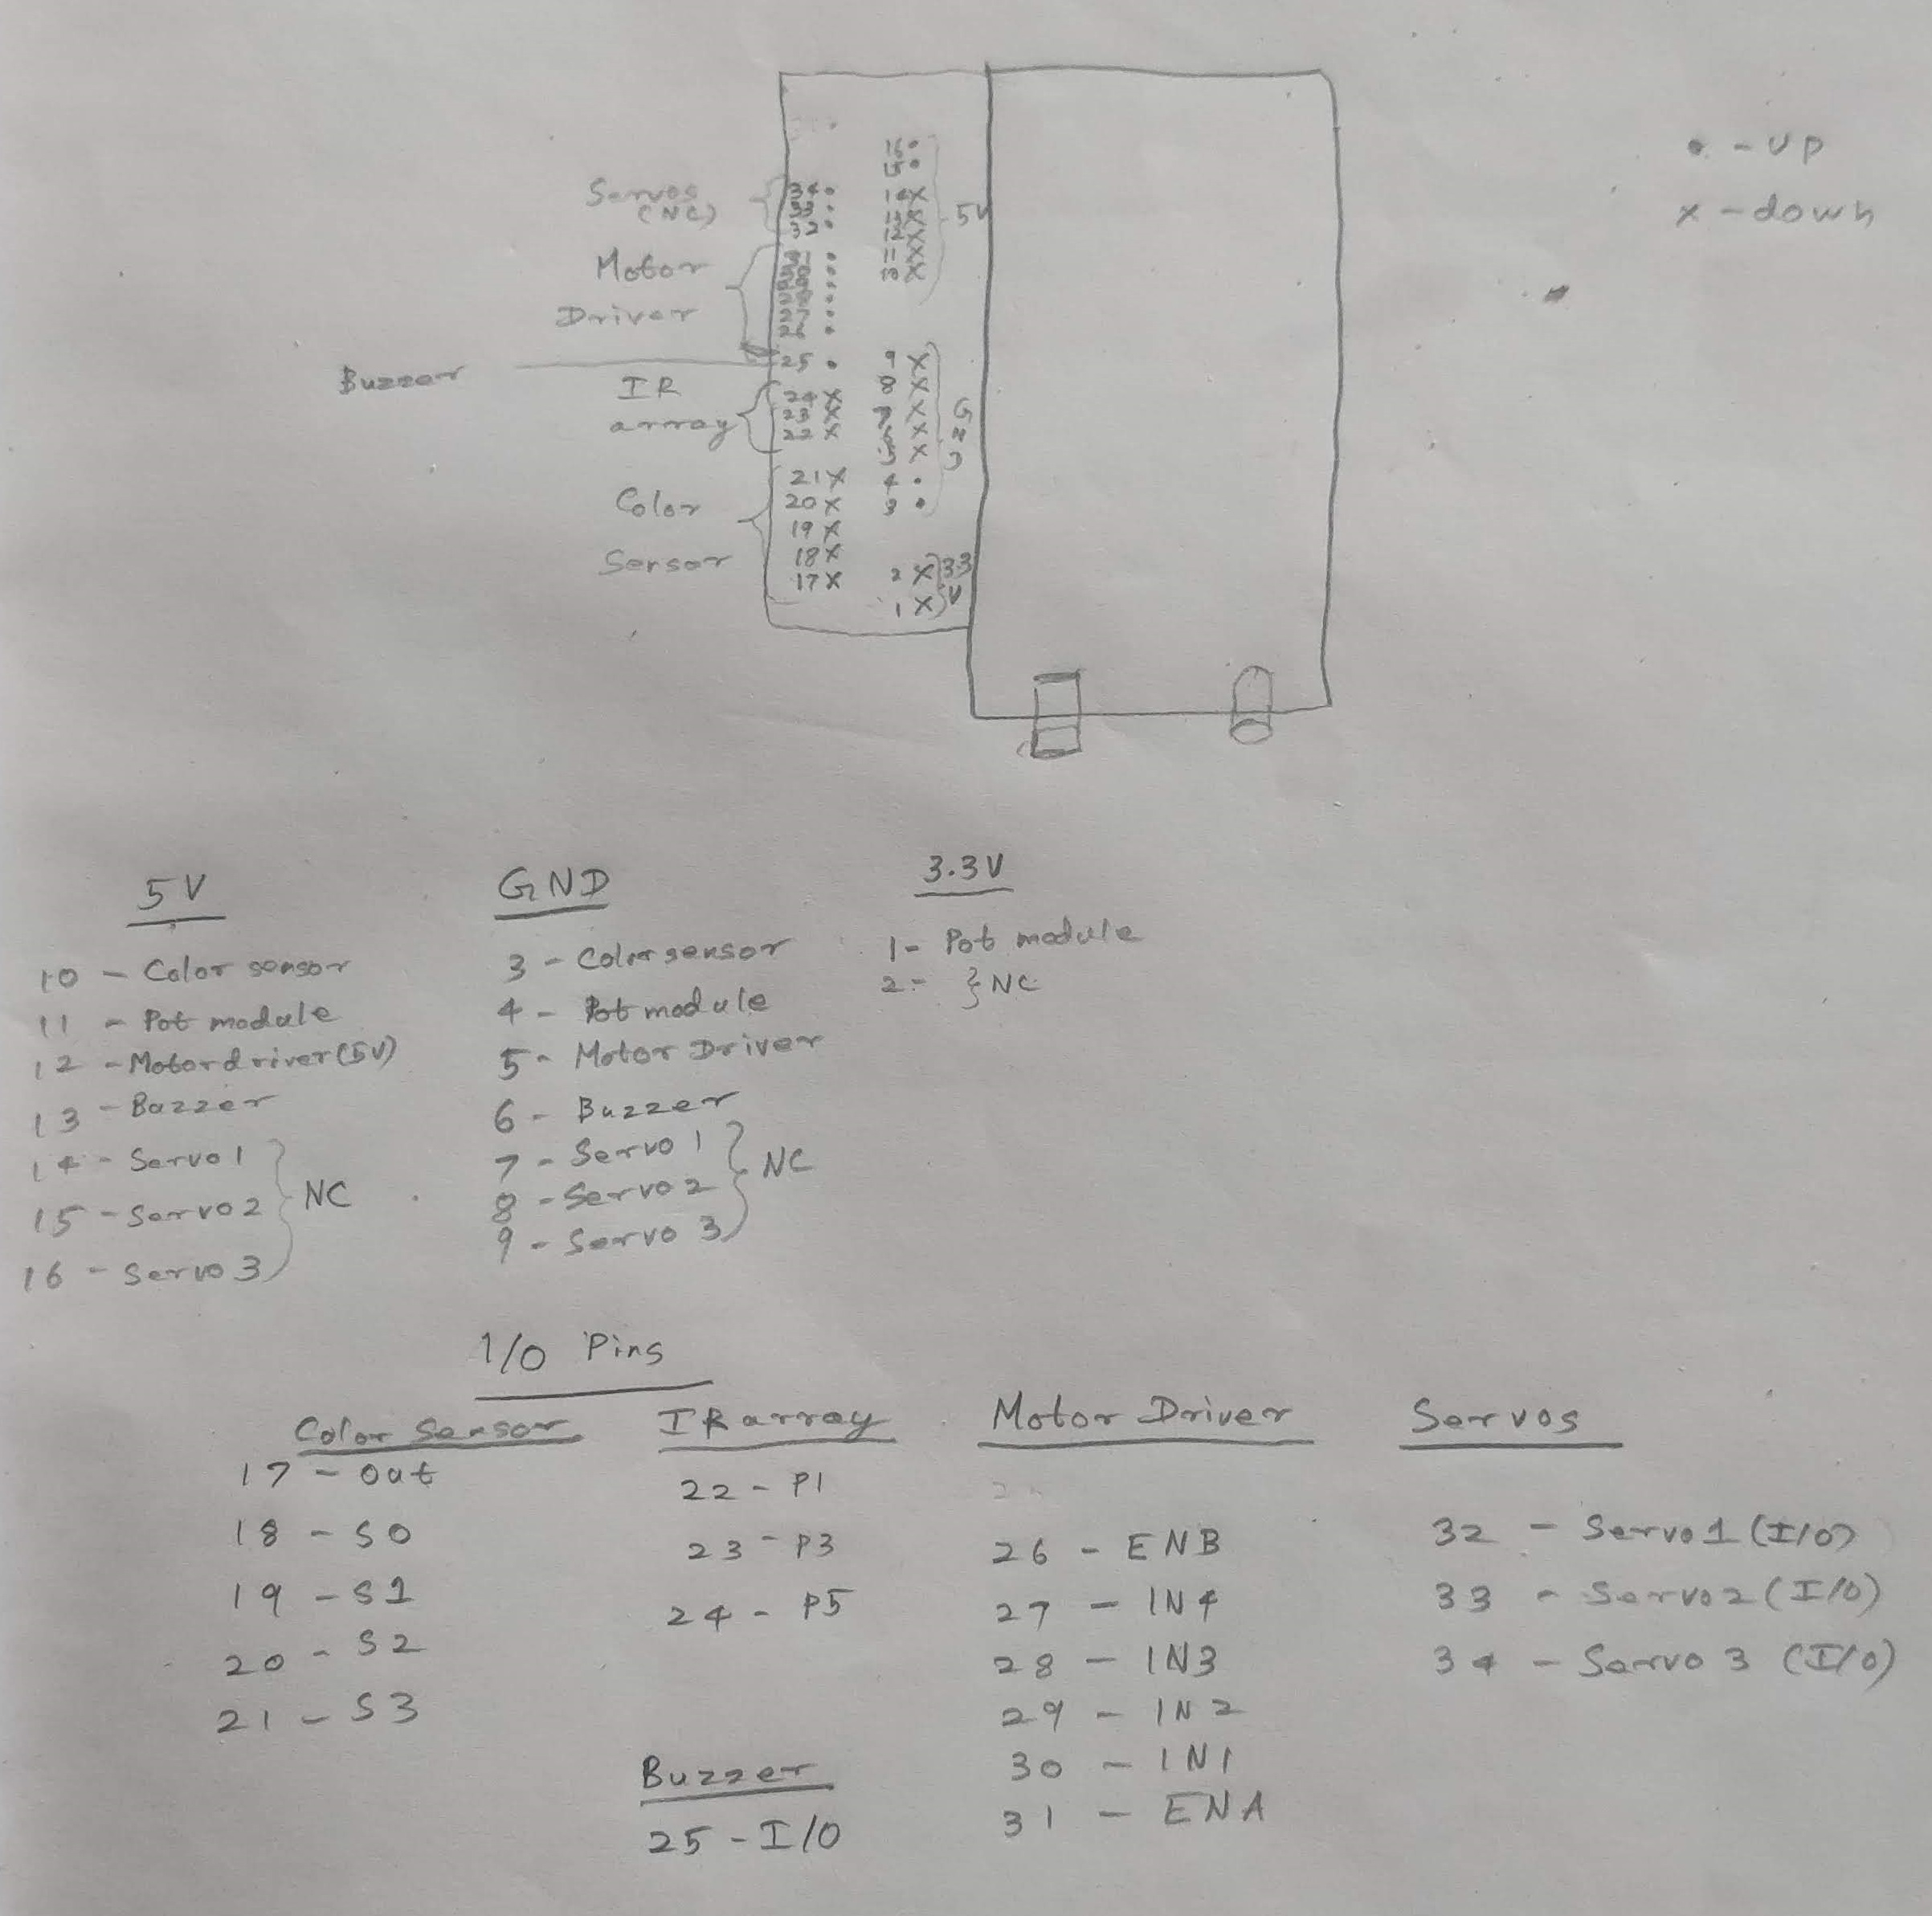 • - UP
x - down
16 •
15 •
Servos
(NC)
34 •
33 •
32 •
14 X
13 X
12 X
11 X
10 X
5V
Motor
Driver
27 •
26 •
Buzzer
25 •
IR
array
24 X
23 X
22 X
9 X
8 X
X
X
X
4 •
3 •
G
N
Color
Sensor
21 X
20 X
19 X
18 X
17 X
2 X
1 X
3.3
V
5V
10 - Color sensor
11 - Pot module
12 - Motor driver (5V)
13 - Buzzer
14 - Servo 1
15 - Servo 2
16 - Servo 3
NC
GND
3 - Color sensor
4 - Pot module
5 - Motor Driver
6 - Buzzer
7 - Servo 1
8 - Servo 2
9 - Servo 3
NC
3.3V
1 - Pot module
2 - } NC
I/O Pins
Color Sensor
17 - out
18 - S0
19 - S1
20 - S2
21 - S3
IR array
22 - P1
23 - P3
24 - P5
Buzzer
25 - I/O
Motor Driver
26 - ENB
27 - IN4
28 - IN3
29 - IN2
30 - IN1
31 - ENA
Servos
32 - Servo 1 (I/O)
33 - Servo 2 (I/O)
34 - Servo 3 (I/O)